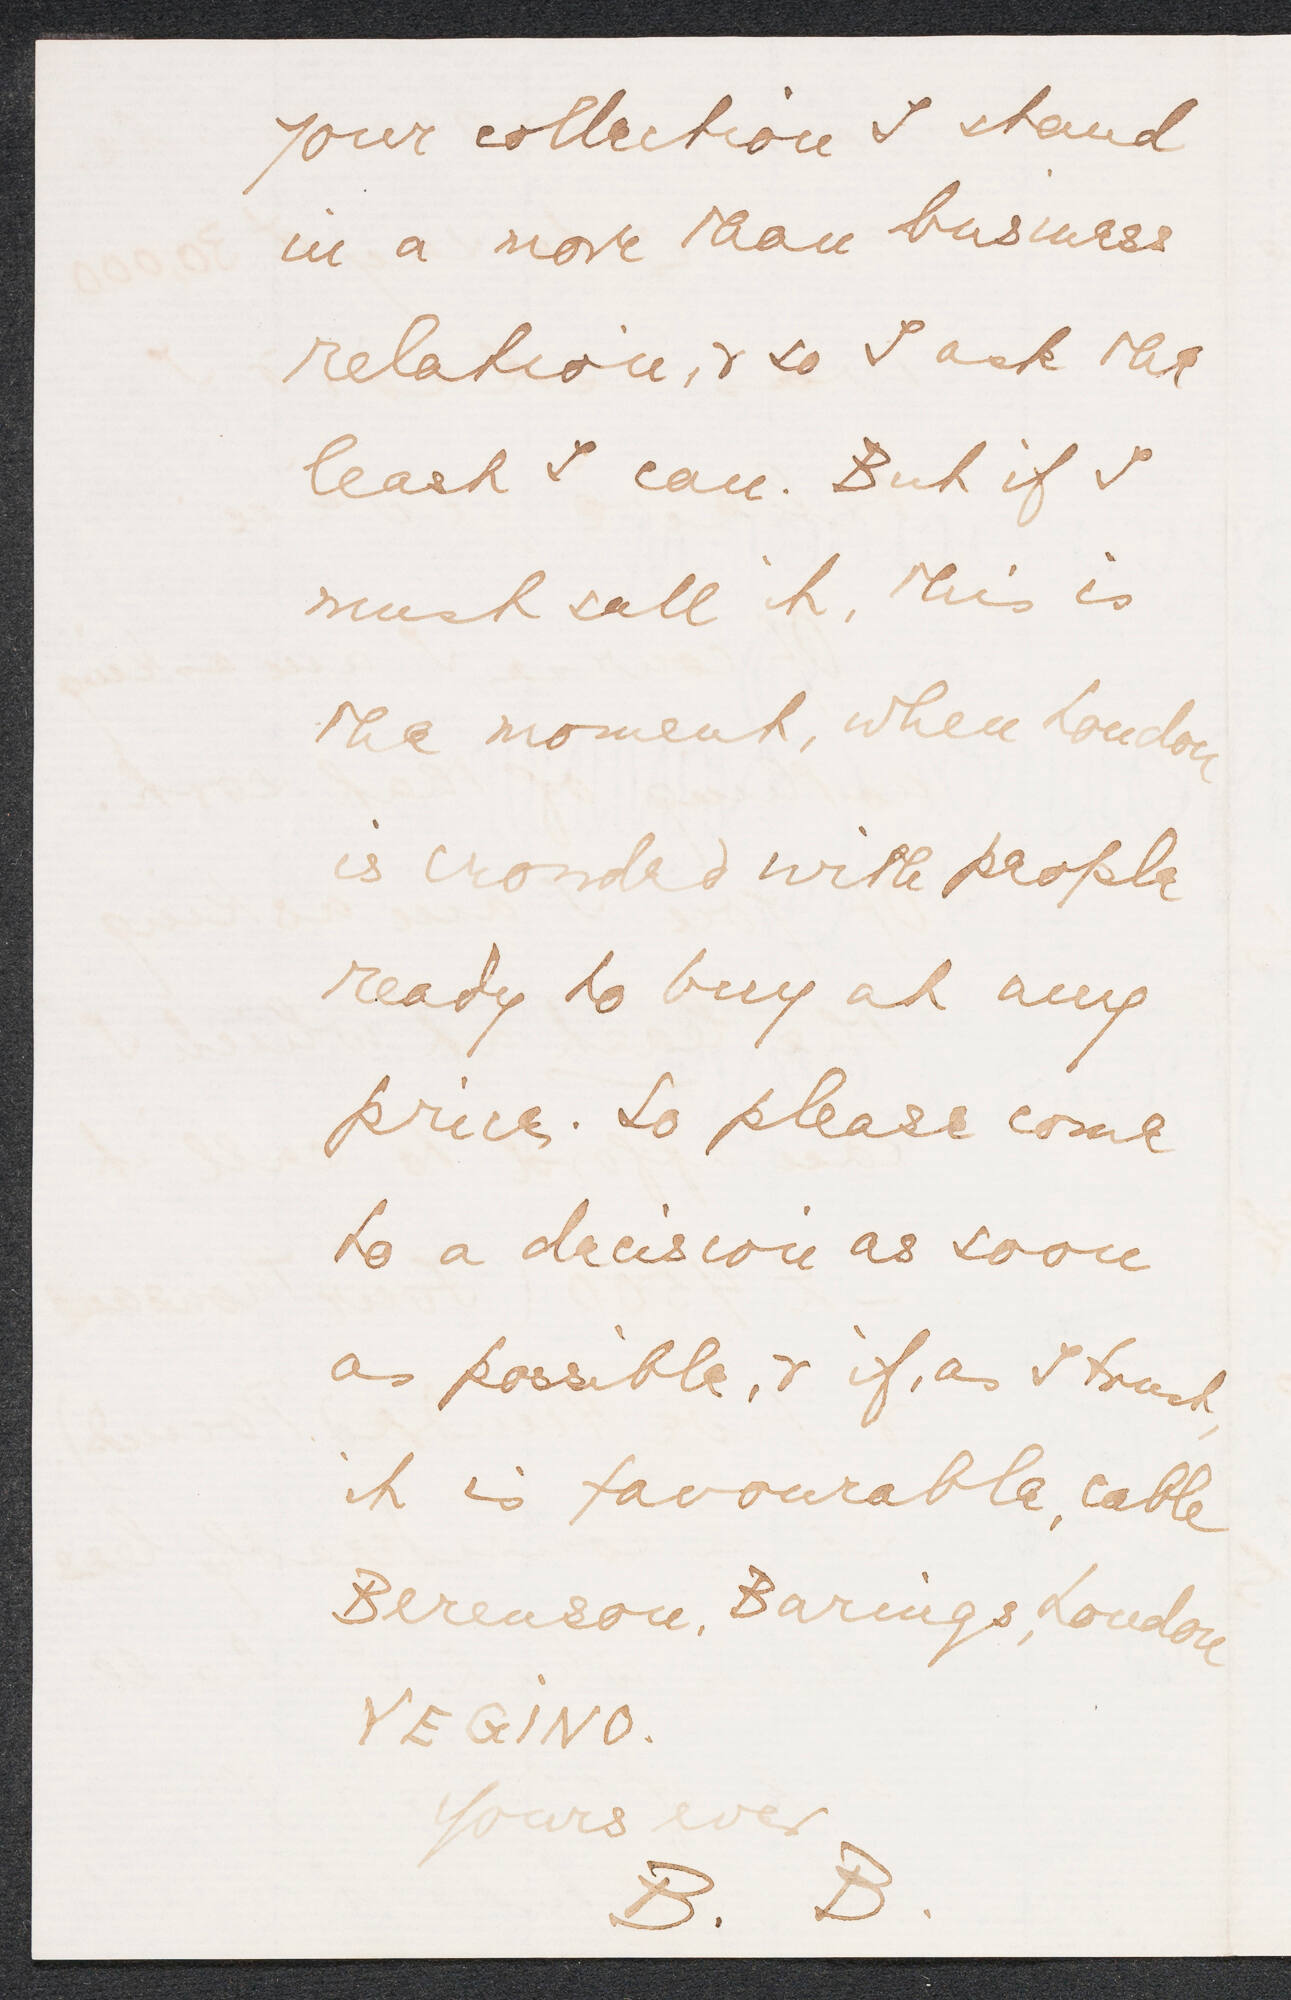 your collection I stand
in a more than business
relation, & so I ask the
least I can. But if I
must sell it, this is
the moment, when London
is crowded with people
ready to buy at any
price. So please come
to a decision as soon
as possible, & if, as I trust,
it is favourable, cable
Berenson, Barings, London
YEGINO.
Yours ever
B. B.